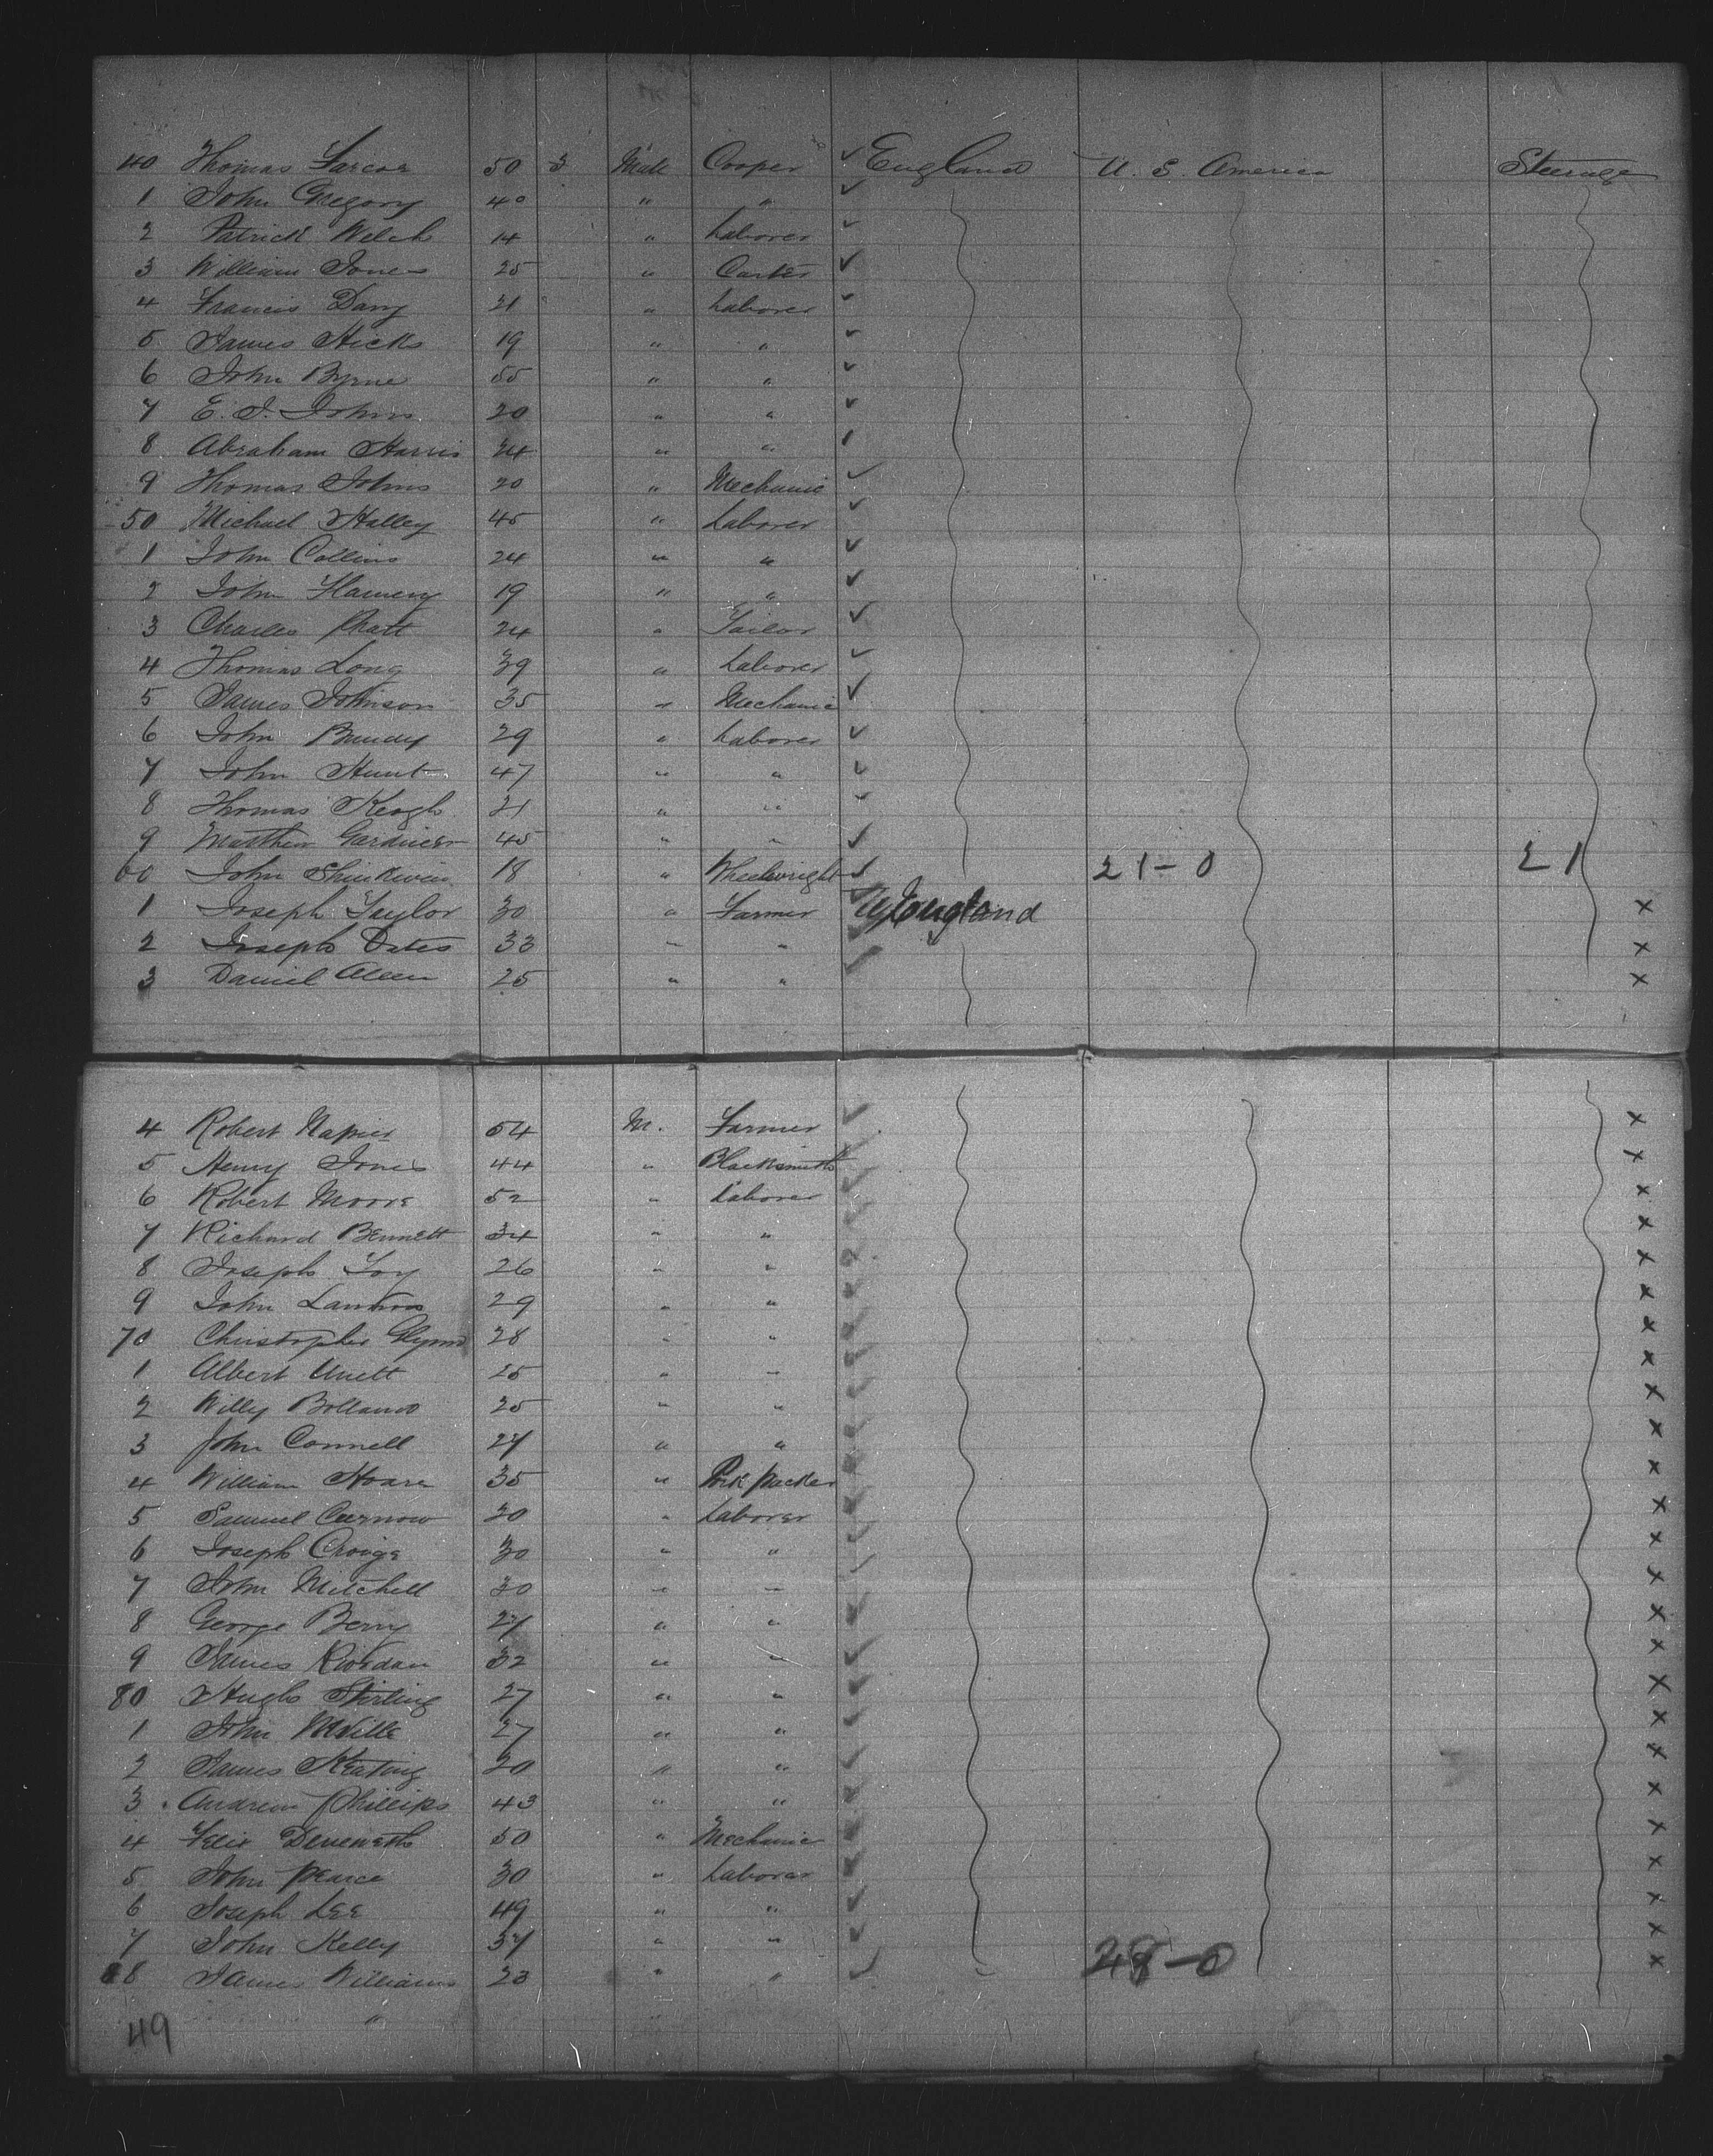 40 Thomas 50 3 Male Cooper ✓ England U. S. America Steerage
1 John Gregory 40 " " ✓
2 Patrick Welch 14 " Laborer ✓
3 William Jones 25 " Carter ✓
4 Francis Davy 21 " Laborer ✓
5 James Hicks 19 " " ✓
6 John Byrne 55 " " ✓
7 E. J. Johns 20 " " ✓
8 Abraham Harris 24 " "
9 Thomas Johns 20 " Mechanic ✓
50 Michael Halley 45 " Laborer ✓
1 John Collins 24 " " ✓
2 John 19 " " ✓
3 Charles Pratt 24 " Tailor ✓
4 Thomas Long 39 " Laborer ✓
5 James Johnson 35 " Mechanic ✓
6 John Bundy 29 " Laborer ✓
7 John Hunt 47 " " ✓
8 Thomas Keogh 21 " " ✓
9 Matthew Gardiner 45 " " ✓
60 John Shinkwin 18 " Wheelwright ✓ 21-0 21
1 Joseph Taylor 30 " Farmer England x
2 Joseph Oates 33 " " ✓ x
3 Daniel Allen 25 " " ✓ x
4 Robert Napier 54 M. Farmer ✓ x
5 Henry Jones 44 " Blacksmith ✓ x
6 Robert Moore 52 " Laborer ✓ x
7 Richard Bennett 34 " " ✓ x
8 Joseph 26 " " ✓ x
9 John 29 " " ✓ x
70 Christopher Glynn 28 " " ✓ x
1 Albert Unett 25 " " ✓ x
2 Willy Bolland 25 " " ✓ x
3 John Connell 27 " " ✓ x
4 William Hoare 35 " Pork packer ✓ x
5 Samuel Curnow 20 " Laborer ✓ x
6 Joseph 30 " " ✓ x
7 John Mitchell 30 " " ✓ x
8 George Berry 27 " " ✓ x
9 James Riordan 32 " " ✓ x
80 Hugh Stirling 27 " " ✓ x
1 John 27 " " ✓ x
2 James Keating 20 " " ✓ x
3 Andrew Phillips 43 " " ✓ x
4 Felix 50 " Mechanic ✓ x
5 John Pearce 30 " Laborer ✓ x
6 Joseph Lee 49 " " ✓ x
7 John Kelly 37 " " ✓ x
88 James Williams 23 " " ✓ 28-0 x
49